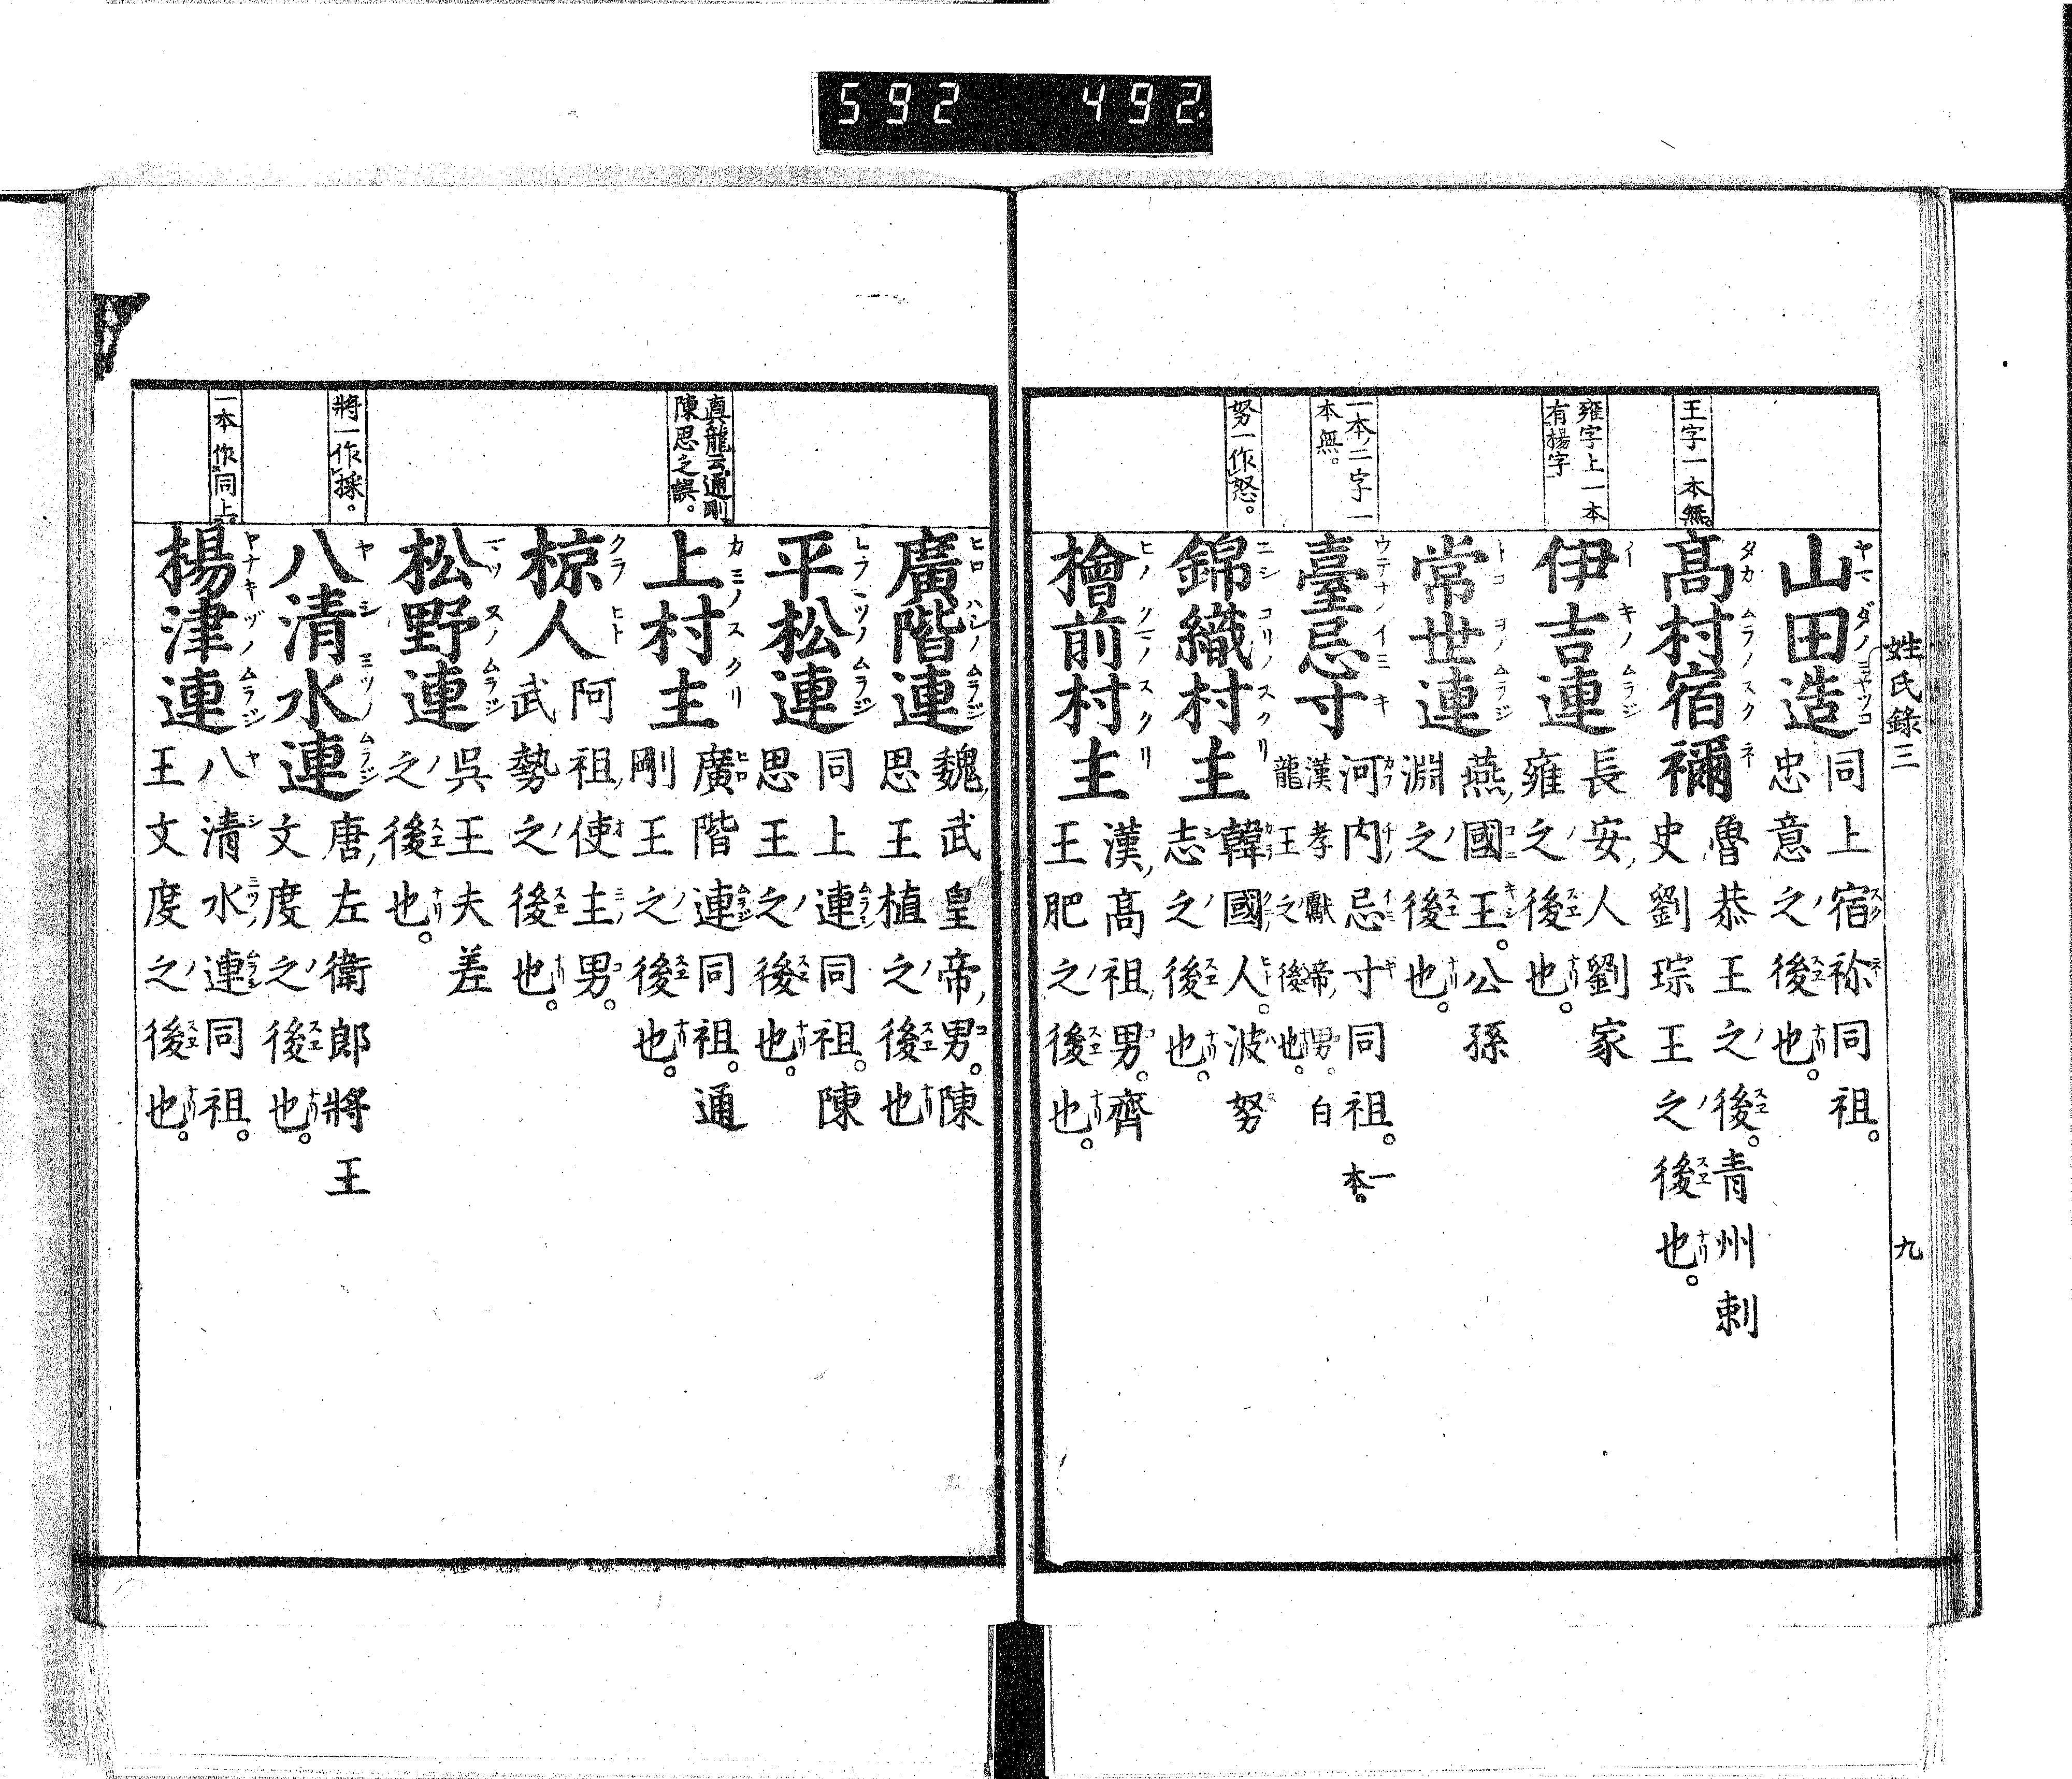 592 492.
姓氏錄三
九
王字一本無。
雍字上一本
有楊字
一本ノ二字一
本無。
努一作怒。
山田造
同上宿祢同祖。
忠意之後也。
髙村宿禰
魯恭王之後。青州刺
史劉琮王之後也。
伊吉連
長安人劉家
雍之後也。
常世連
燕國王。公孫
淵之後也。
臺忌寸
河内忌寸同祖。一本。
漢孝獻帝男白
龍王之後也。
錦織村主
韓國人。波努
志之後也。
檜前村主
漢髙祖男。齊
王肥之後也。
真龍云通剛
陳思之誤。
將一作採。
一本作同上。
廣階連
魏武皇帝男。陳
思王植之後也
平松連
同上連同祖。陳
思王之後也。
上村主
廣階連同祖。通
剛王之後也。
椋人
阿祖使主男。
武勢之後也。
松野連
吳王夫差
之後也。
八清水連
唐左衛郎將王
文度之後也。
楊津連
八清水連同祖。
王文度之後也。